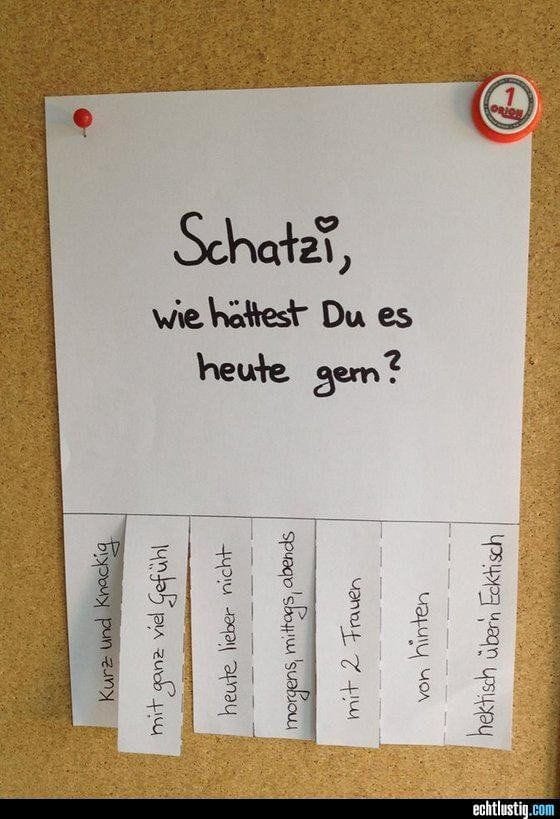 1
ORION
Schatzi,
wie hättest Du es
heute gern?
Kurz und Knackig
mit ganz viel Gefühl
heute lieber nicht
morgens, mittags, abends
mit 2 Frauen
von hinten
hektisch übern Ecktisch
echtlustig.com